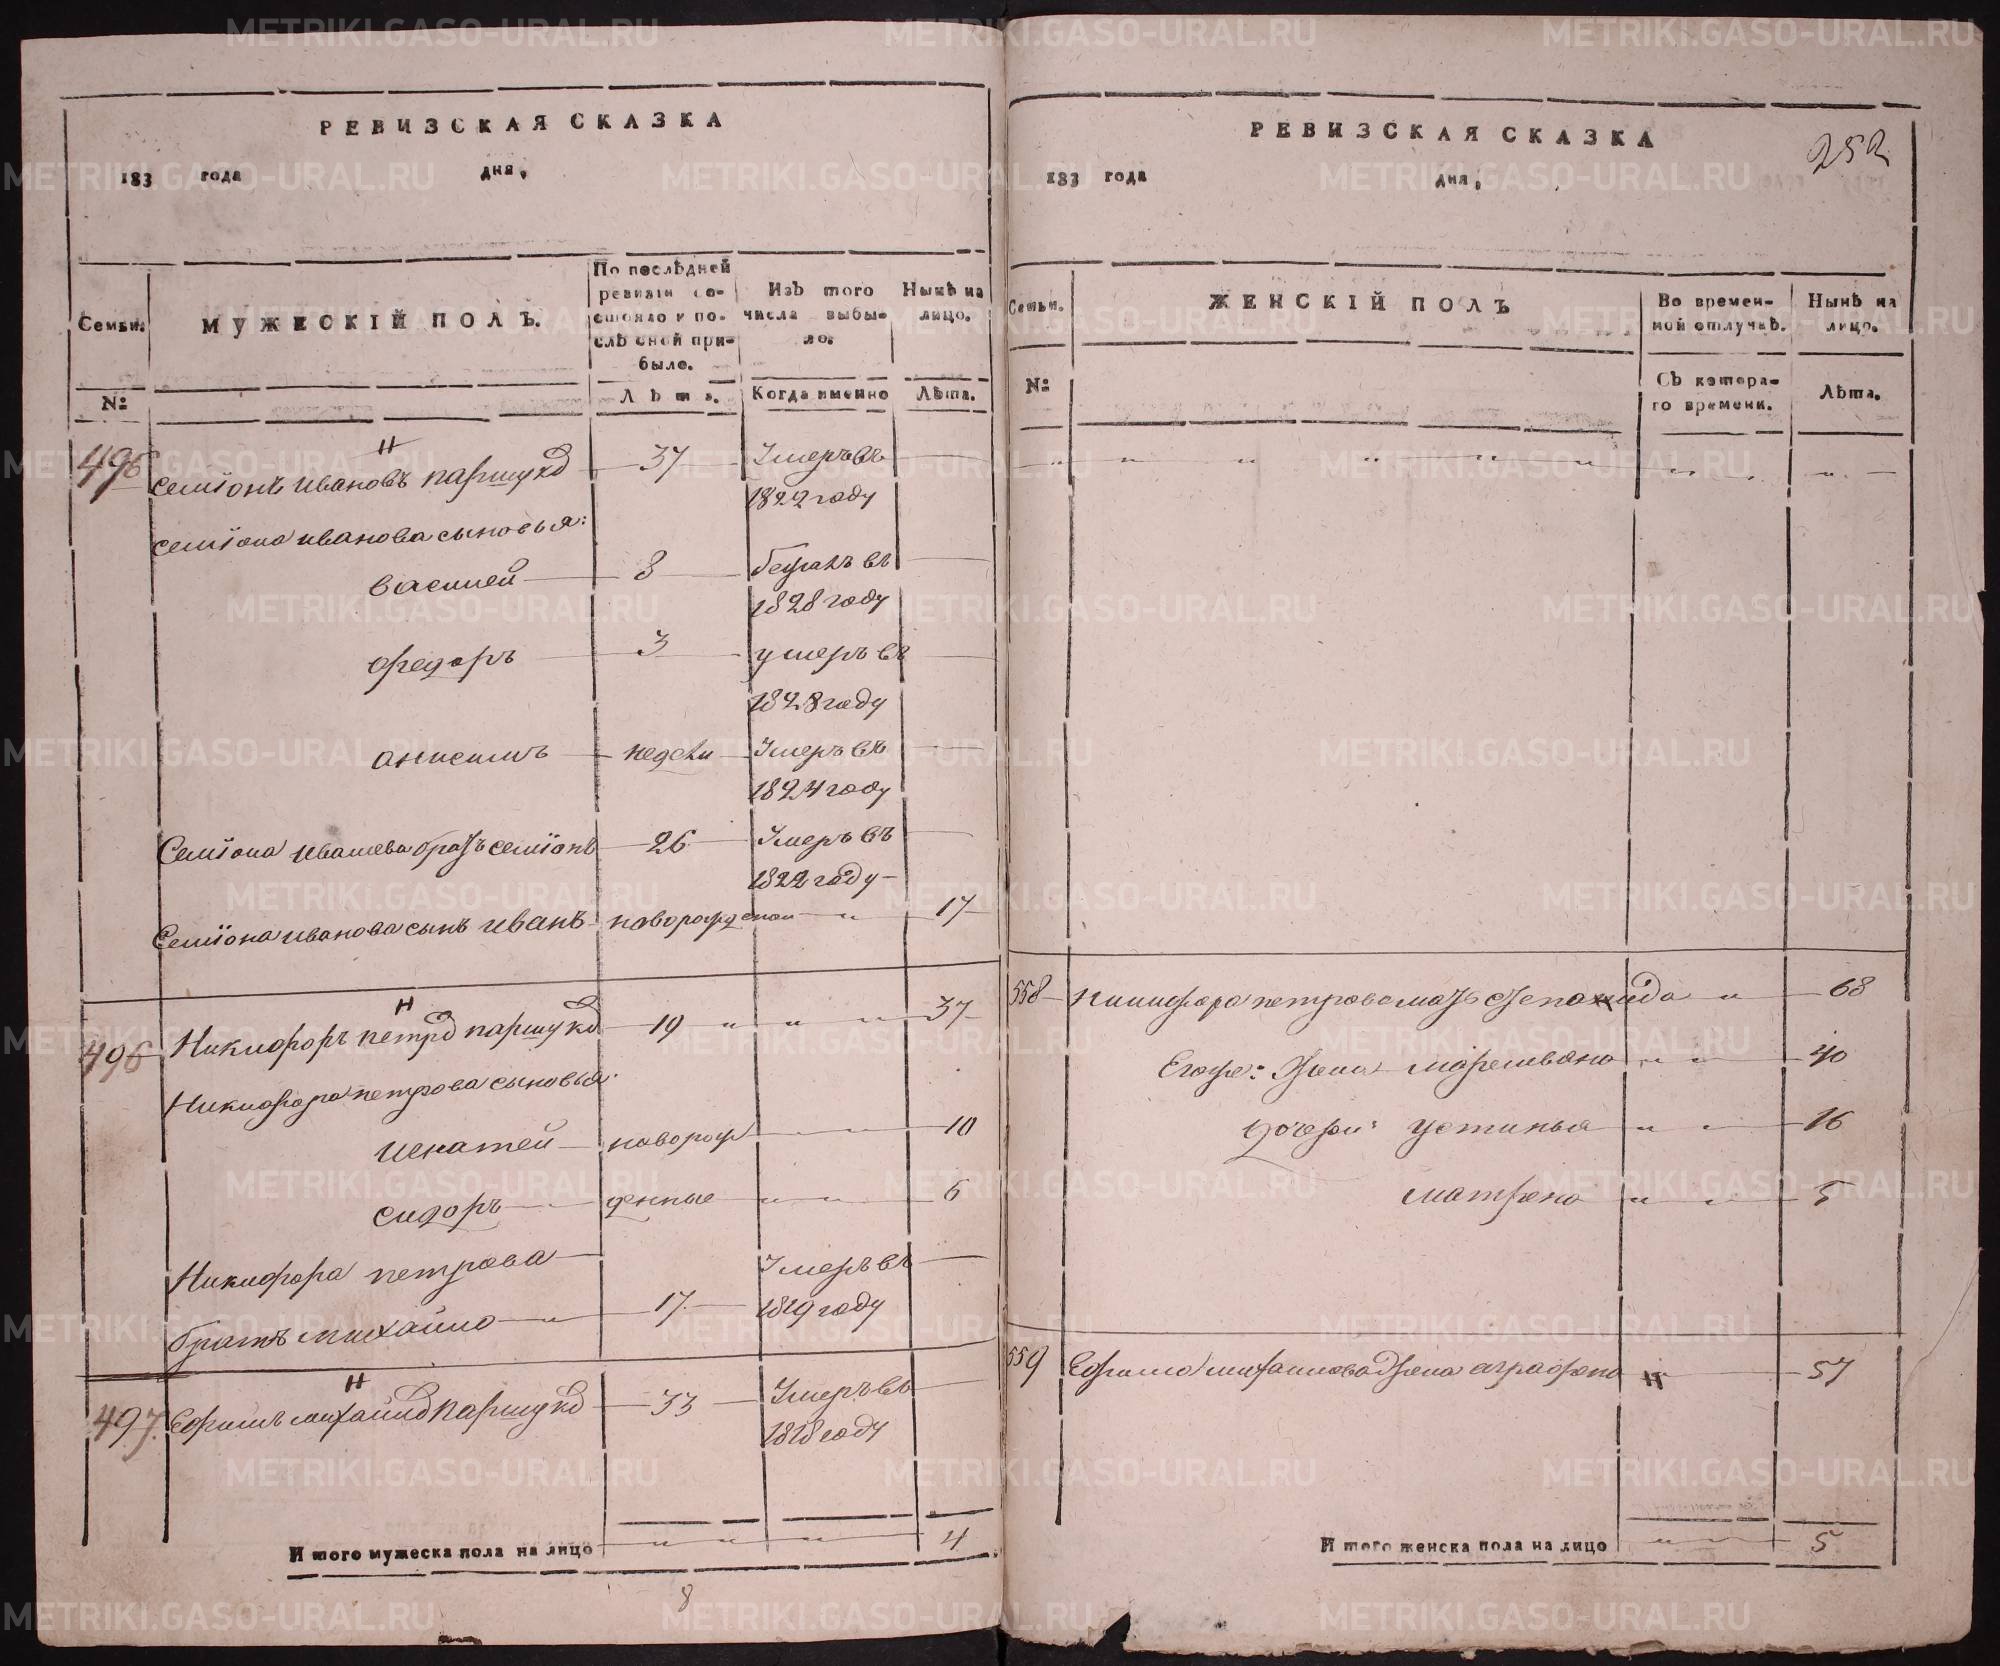 РЕВИЗСКАЯ СКАЗКА
183 года дня,
Семьи.
МУЖЕСКІЙ ПОЛЪ.
По послѣдней ревизіи состояло и послѣ оной прибыло.
Изъ того числа выбыло.
Нынѣ на лицо.
№
Лѣта.
Когда именно
Лѣта.
Н
495 семіонъ ивановъ паршуковъ 37 Умеръ въ
1822 году
семіона иванова сыновья:
василей 8 бежалъ въ
1828 году
федоръ 3 умеръ въ
1828 году
анисимъ недели Умеръ въ
1824 году
Семіона иванова братъ семіонъ 26 Умеръ въ
1822 году
Семіона иванова сынъ иванъ новорожденой 17
Н
496 Никифоръ петровъ паршуковъ 19 37
Никифора петрова сыновья:
игнатей новорож 10
сидоръ денные 6
Никифора петрова Умеръ въ
братъ михайло 17 1819 году
Н
497. Ефимъ михайловъ паршуковъ 33 Умеръ въ
1818 году
Итого мужеска пола на лицо 4
8
РЕВИЗСКАЯ СКАЗКА
252
183 года дня,
Семьи.
ЖЕНСКІЙ ПОЛЪ
Во временной отлучкѣ.
Нынѣ на лицо.
№
Съ котораго времени.
Лѣта.
558 никифора петрова мать степанида 68
Егоже: жена марья ивана 40
дочери: устинья 16
матрена 5
559 Ефима михаилова жена аграфена 57
Итого женска пола на лицо 5
METRIKI.GASO-URAL.RU